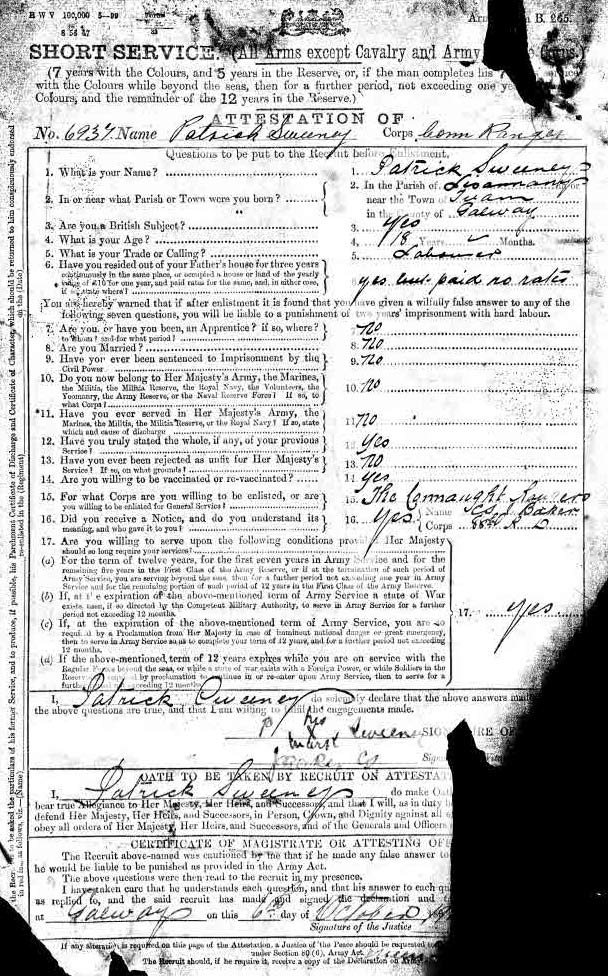 H W V 100,000 5—99
Arm B. 265.
SHORT SERVICE. (All Arms except Cavalry and Army Corps.)
(7 years with the Colours, and 5 years in the Reserve, or, if the man completes his 7
with the Colours while beyond the seas, then for a further period, not exceeding one year
Colours, and the remainder of the 12 years in the Reserve.)
ATTESTATION OF
No. 6937 Name Patrick Sweeney Corps Conn Ranger
Questions to be put to the Recruit before Enlistment.
1. What is your Name? 1. Patrick Sweeney
2. In or near what Parish or Town were you born? 2. In the Parish of
near the Town of Tuam
in the county of Galway
3. Are you a British Subject? 3. Yes
4. What is your Age? 4. 18 Years Months.
5. What is your Trade or Calling? 5. Labourer
6. Have you resided out of your Father's house for three years
continuously in the same place, or occupied a house or land of the yearly
value of £10 for one year, and paid rates for the same, and, in either case,
if so, state where? yes but paid no rates
You are hereby warned that if after enlistment it is found that you have given a wilfully false answer to any of the
following seven questions, you will be liable to a punishment of two years' imprisonment with hard labour.
7. Are you, or have you been, an Apprentice? if so, where?
to whom? and for what period? 7. no
8. Are you Married? 8. no
9. Have you ever been sentenced to Imprisonment by the
Civil Power 9. no
10. Do you now belong to Her Majesty's Army, the Marines,
the Militia, the Militia Reserve, the Royal Navy, the Volunteers, the
Yeomanry, the Army Reserve, or the Naval Reserve Force? If so, to
what Corps? 10. no
*11. Have you ever served in Her Majesty's Army, the
Marines, the Militia, the Militia Reserve, or the Royal Navy? If so, state
which and cause of discharge 11. no
12. Have you truly stated the whole, if any, of your previous
Service? 12 yes
13. Have you ever been rejected as unfit for Her Majesty's
Service? If so, on what grounds? 13. no
14. Are you willing to be vaccinated or re-vaccinated? 14 yes
15. For what Corps are you willing to be enlisted, or are
you willing to be enlisted for General Service? 15. The Connaught Rangers
16. Did you receive a Notice, and do you understand its
meaning, and who gave it to you? 16. Yes Name Baker
Corps 88th R. D
17. Are you willing to serve upon the following conditions provided Her Majesty
should so long require your services?
(a) For the term of twelve years, for the first seven years in Army Service and for the
remaining five years in the First Class of the Army Reserve, or if at the termination of such period of
Army Service, you are serving beyond the seas, then for a further period not exceeding one year in Army
Service and for the remaining portion of such period of 12 years in the First Class of the Army Reserve.
(b) If, at the expiration of the above-mentioned term of Army Service a state of War
exists, then, if so directed by the Competent Military Authority, to serve in Army Service for a further
period not exceeding 12 months.
(c) If, at the expiration of the above-mentioned term of Army Service, you are so
required by a Proclamation from Her Majesty in case of imminent national danger or great emergency,
then to serve in Army Service so as to complete your term of 12 years, and for a further period not exceeding
12 months.
(d) If the above-mentioned term of 12 years expires while you are on service with the
Regular Forces beyond the seas, or while a state of war exists with a Foreign Power, or while Soldiers in the
Reserve required by proclamation to continue in or re-enter upon Army Service, then to serve for a
further period not exceeding 12 months
17. Yes
I, Patrick Sweeney do solemnly declare that the above answers made
the above questions are true, and that I am willing to fulfil the engagements made.
P his Sweeney SIGNATURE OF
mark
OATH TO BE TAKEN BY RECRUIT ON ATTESTAT
I, Patrick Sweeney do make Oath
bear true Allegiance to Her Majesty, Her Heirs, and Successors, and that I will, as in duty b
defend Her Majesty, Her Heirs, and Successors, in Person, Crown, and Dignity against all
obey all orders of Her Majesty, Her Heirs, and Successors, and of the Generals and Officers
CERTIFICATE OF MAGISTRATE OR ATTESTING OFF
The Recruit above-named was cautioned by me that if he made any false answer to
he would be liable to be punished as provided in the Army Act.
The above questions were then read to the recruit in my presence.
I have taken care that he understands each question, and that his answer to each qu
as replied to, and the said recruit has made and signed the declaration and
at Galway on this 6th day of October
Signature of the Justice
If any alteration is required on this page of the Attestation, a Justice of the Peace should be requested to
under Section 80 (6), Army Act.
The Recruit should, if he require it, receive a copy of the Declaration on